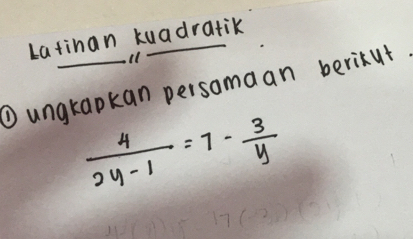 Latihan kuadratik
① ungkapkan persamaan berikut.
4/(2y-1) = 7 - 3/y